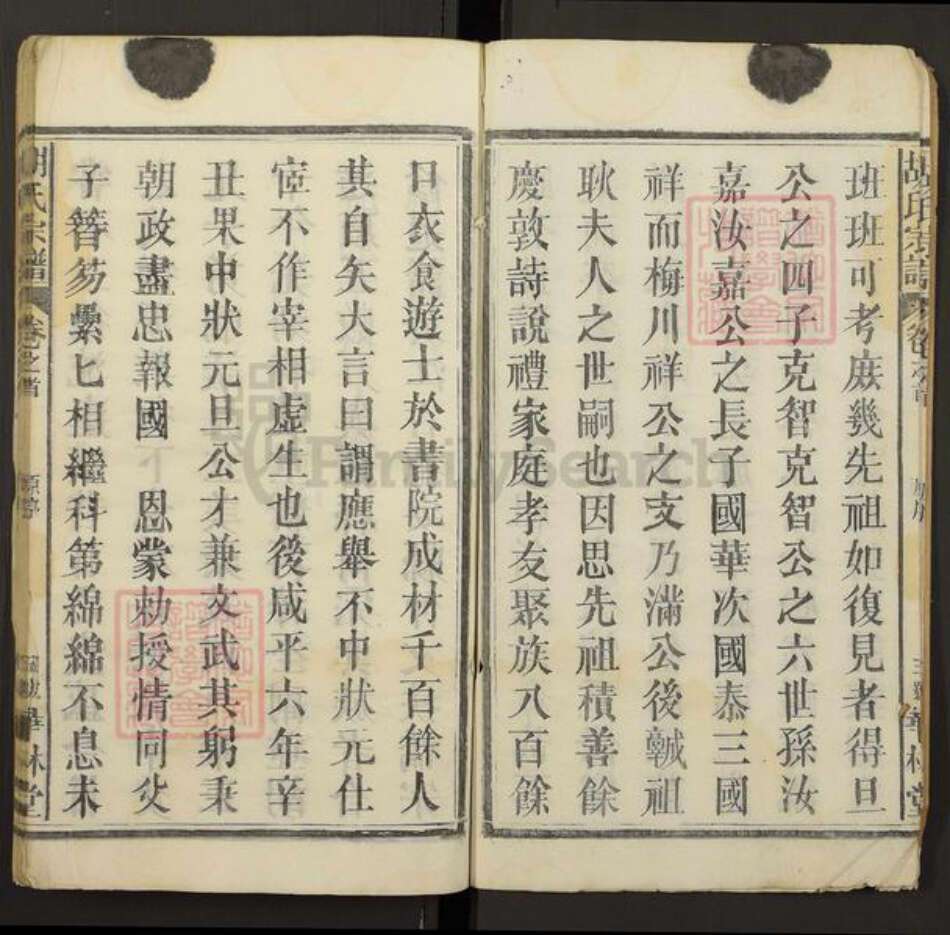 班班可考庶幾先祖如復見者得旦
公之四子克智克智公之六世孫汝
嘉汝嘉公之長子國華次國泰三國
祥而梅川祥公之支乃滿公後龣祖
耿夫人之世嗣也因思先祖積善餘
慶敦詩說禮家庭孝友聚族八百餘
口衣食遊士於書院成材千百餘人
其自矢大言曰謂應舉不中狀元仕
宦不作宰相虛生也後咸平六年辛
丑果中狀元旦公才兼文武其躬秉
朝政盡忠報國 恩蒙勅授情同父
子簪笏纍匕相繼科第綿綿不息未
胡氏宗譜 卷之首
華林堂
FamilySearch